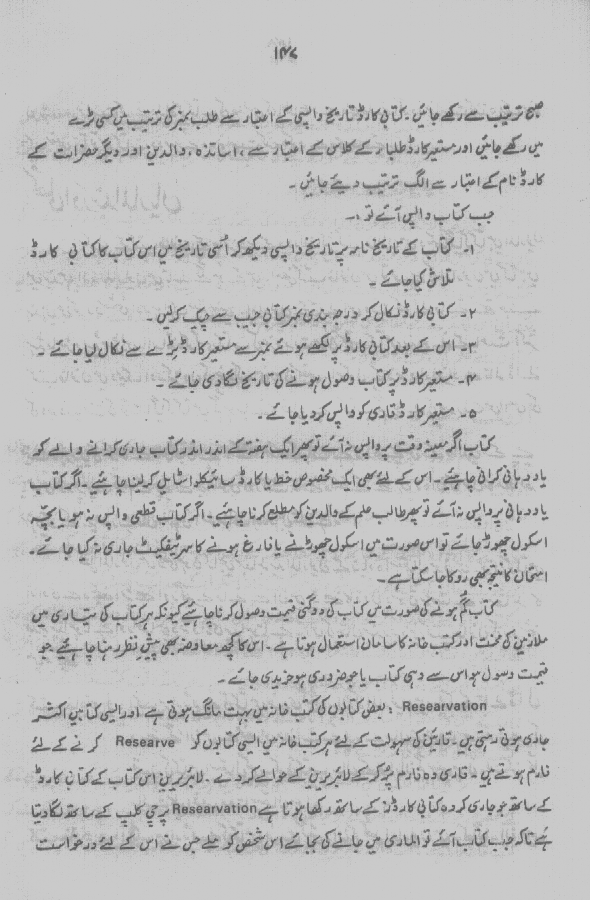 ۱۴۷
صحیح ترتیب سے رکھے جائیں۔ کتابی کارڈ تاریخ واپسی کے اعتبار سے طلب نمبر کی ترتیب میں کسی ٹرے
میں رکھے جائیں اور مستعیر کارڈ طلباء کے کلاس کے اعتبار سے، اساتذہ، والدین اور دیگر حضرات کے
کارڈ نام کے اعتبار سے الگ ترتیب دیئے جائیں۔
جب کتاب واپس آئے تو:۔
۱۔ کتاب کے تاریخ نامہ پر تاریخ واپسی دیکھ کر اُسی تاریخ میں اس کتاب کا کتابی کارڈ
تلاش کیا جائے۔
۲۔ کتابی کارڈ نکال کر درجہ بندی نمبر کتابی جیب سے چیک کرلیں۔
۳۔ اس کے بعد کتابی کارڈ پر لکھے ہوئے نمبر سے مستعیر کارڈ ٹرے سے نکال لیا جائے۔
۴۔ مستعیر کارڈ پر کتاب وصول ہونے کی تاریخ لگادی جائے۔
۵۔ مستعیر کارڈ قاری کو واپس کردیا جائے۔
کتاب اگر معینہ وقت پر واپس نہ آئے تو پھر ایک ہفتہ کے اندر اندر کتاب جاری کرانے والے کو
یاد دہانی کرانی چاہیئے۔ اس کے لئے بھی ایک مخصوص خط یا کارڈ سائیکلو اسٹایل کرلینا چاہئیے۔ اگر کتاب
یاد دہانی پر واپس نہ آئے تو پھر طالب علم کے والدین کو مطلع کرنا چاہئیے۔ اگر کتاب قطعی واپس نہ ہو یا بچہ
اسکول چھوڑ جائے تو اس صورت میں اسکول چھوڑنے یا فارغ ہونے کا سرٹیفکیٹ جاری نہ کیا جائے۔
امتحان کا نتیجہ بھی روکا جاسکتا ہے۔
کتاب گم ہونے کی صورت میں کتاب کی دوگنی قیمت وصول کرنا چاہئیے کیونکہ ہر کتاب کی تیاری میں
ملازمین کی محنت اور کتب خانہ کا سامان استعمال ہوتا ہے۔ اس کا کچھ معاوضہ بھی پیش نظر رہنا چاہئیے جو
قیمت وسول ہو اس سے وہی کتاب یا جو ضروری ہو خریدی جائے۔
Researvation : بعض کتابوں کی کتب خانہ میں بہت مانگ ہوتی ہے اور ایسی کتابیں اکثر
جاری ہوتی رہتی ہیں۔ قارئین کی سہولت کے لئے ہر کتب خانہ میں ایسی کتابوں کو Researve کرنے کے لئے
فارم ہوتے ہیں۔ قاری وہ فارم پُر کرکے لائبریرین کے حوالے کردے۔ لائبریرین اس کتاب کے کتابی کارڈ
کے ساتھ جو جاری کردہ کتابی کارڈز کے ساتھ رکھا ہوتا ہے Researvation پرچی کلپ کے ساتھ لگا دیتا
ہے تاکہ جب کتاب آئے تو الماری میں جانے کی بجائے اس شخص کو ملے جس نے اس کے لئے درخواست